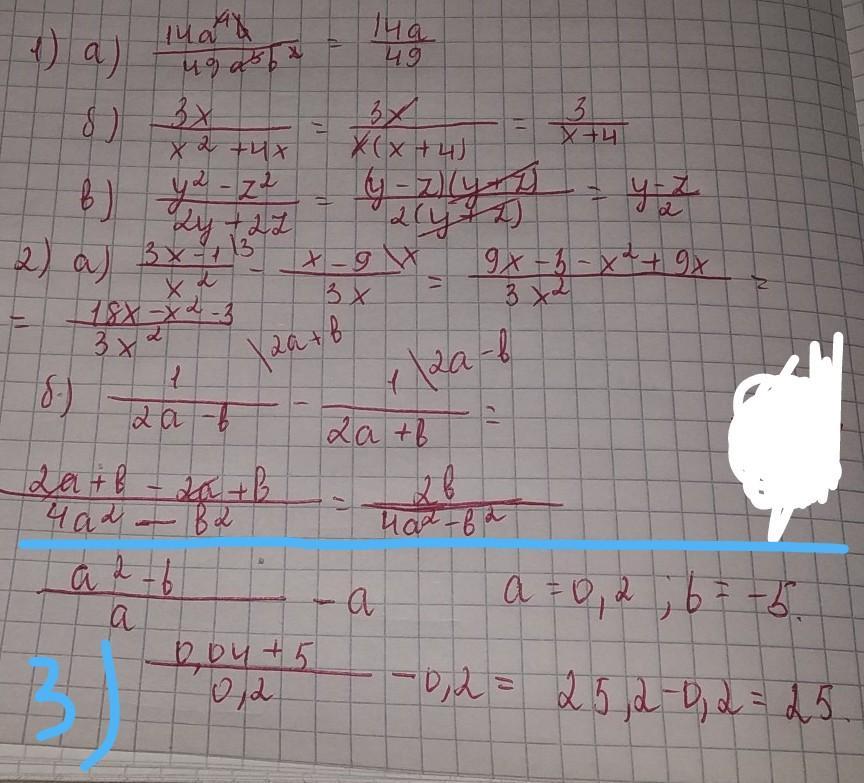 1) а) 14a⁴b / 49a⁵b² = 14a / 49
б) 3x / x² + 4x = 3x / x(x + 4) = 3 / x+4
в) y² - z² / 2y + 2z = (y - z)(y + z) / 2(y + z) = y-z / 2
2) а) 3x - 1 \3 / x² - x - 9 \x / 3x = 9x - 3 - x² + 9x / 3x² =
= 18x - x² - 3 / 3x²
б) 1 \2a+b / 2a - b - 1 \2a-b / 2a + b =
2a + b - 2a + b / 4a² - b² = 2b / 4a² - b²
a² - b / a - a a = 0,2 ; b = -5.
3) 0,04 + 5 / 0,2 - 0,2 = 25,2 - 0,2 = 25.